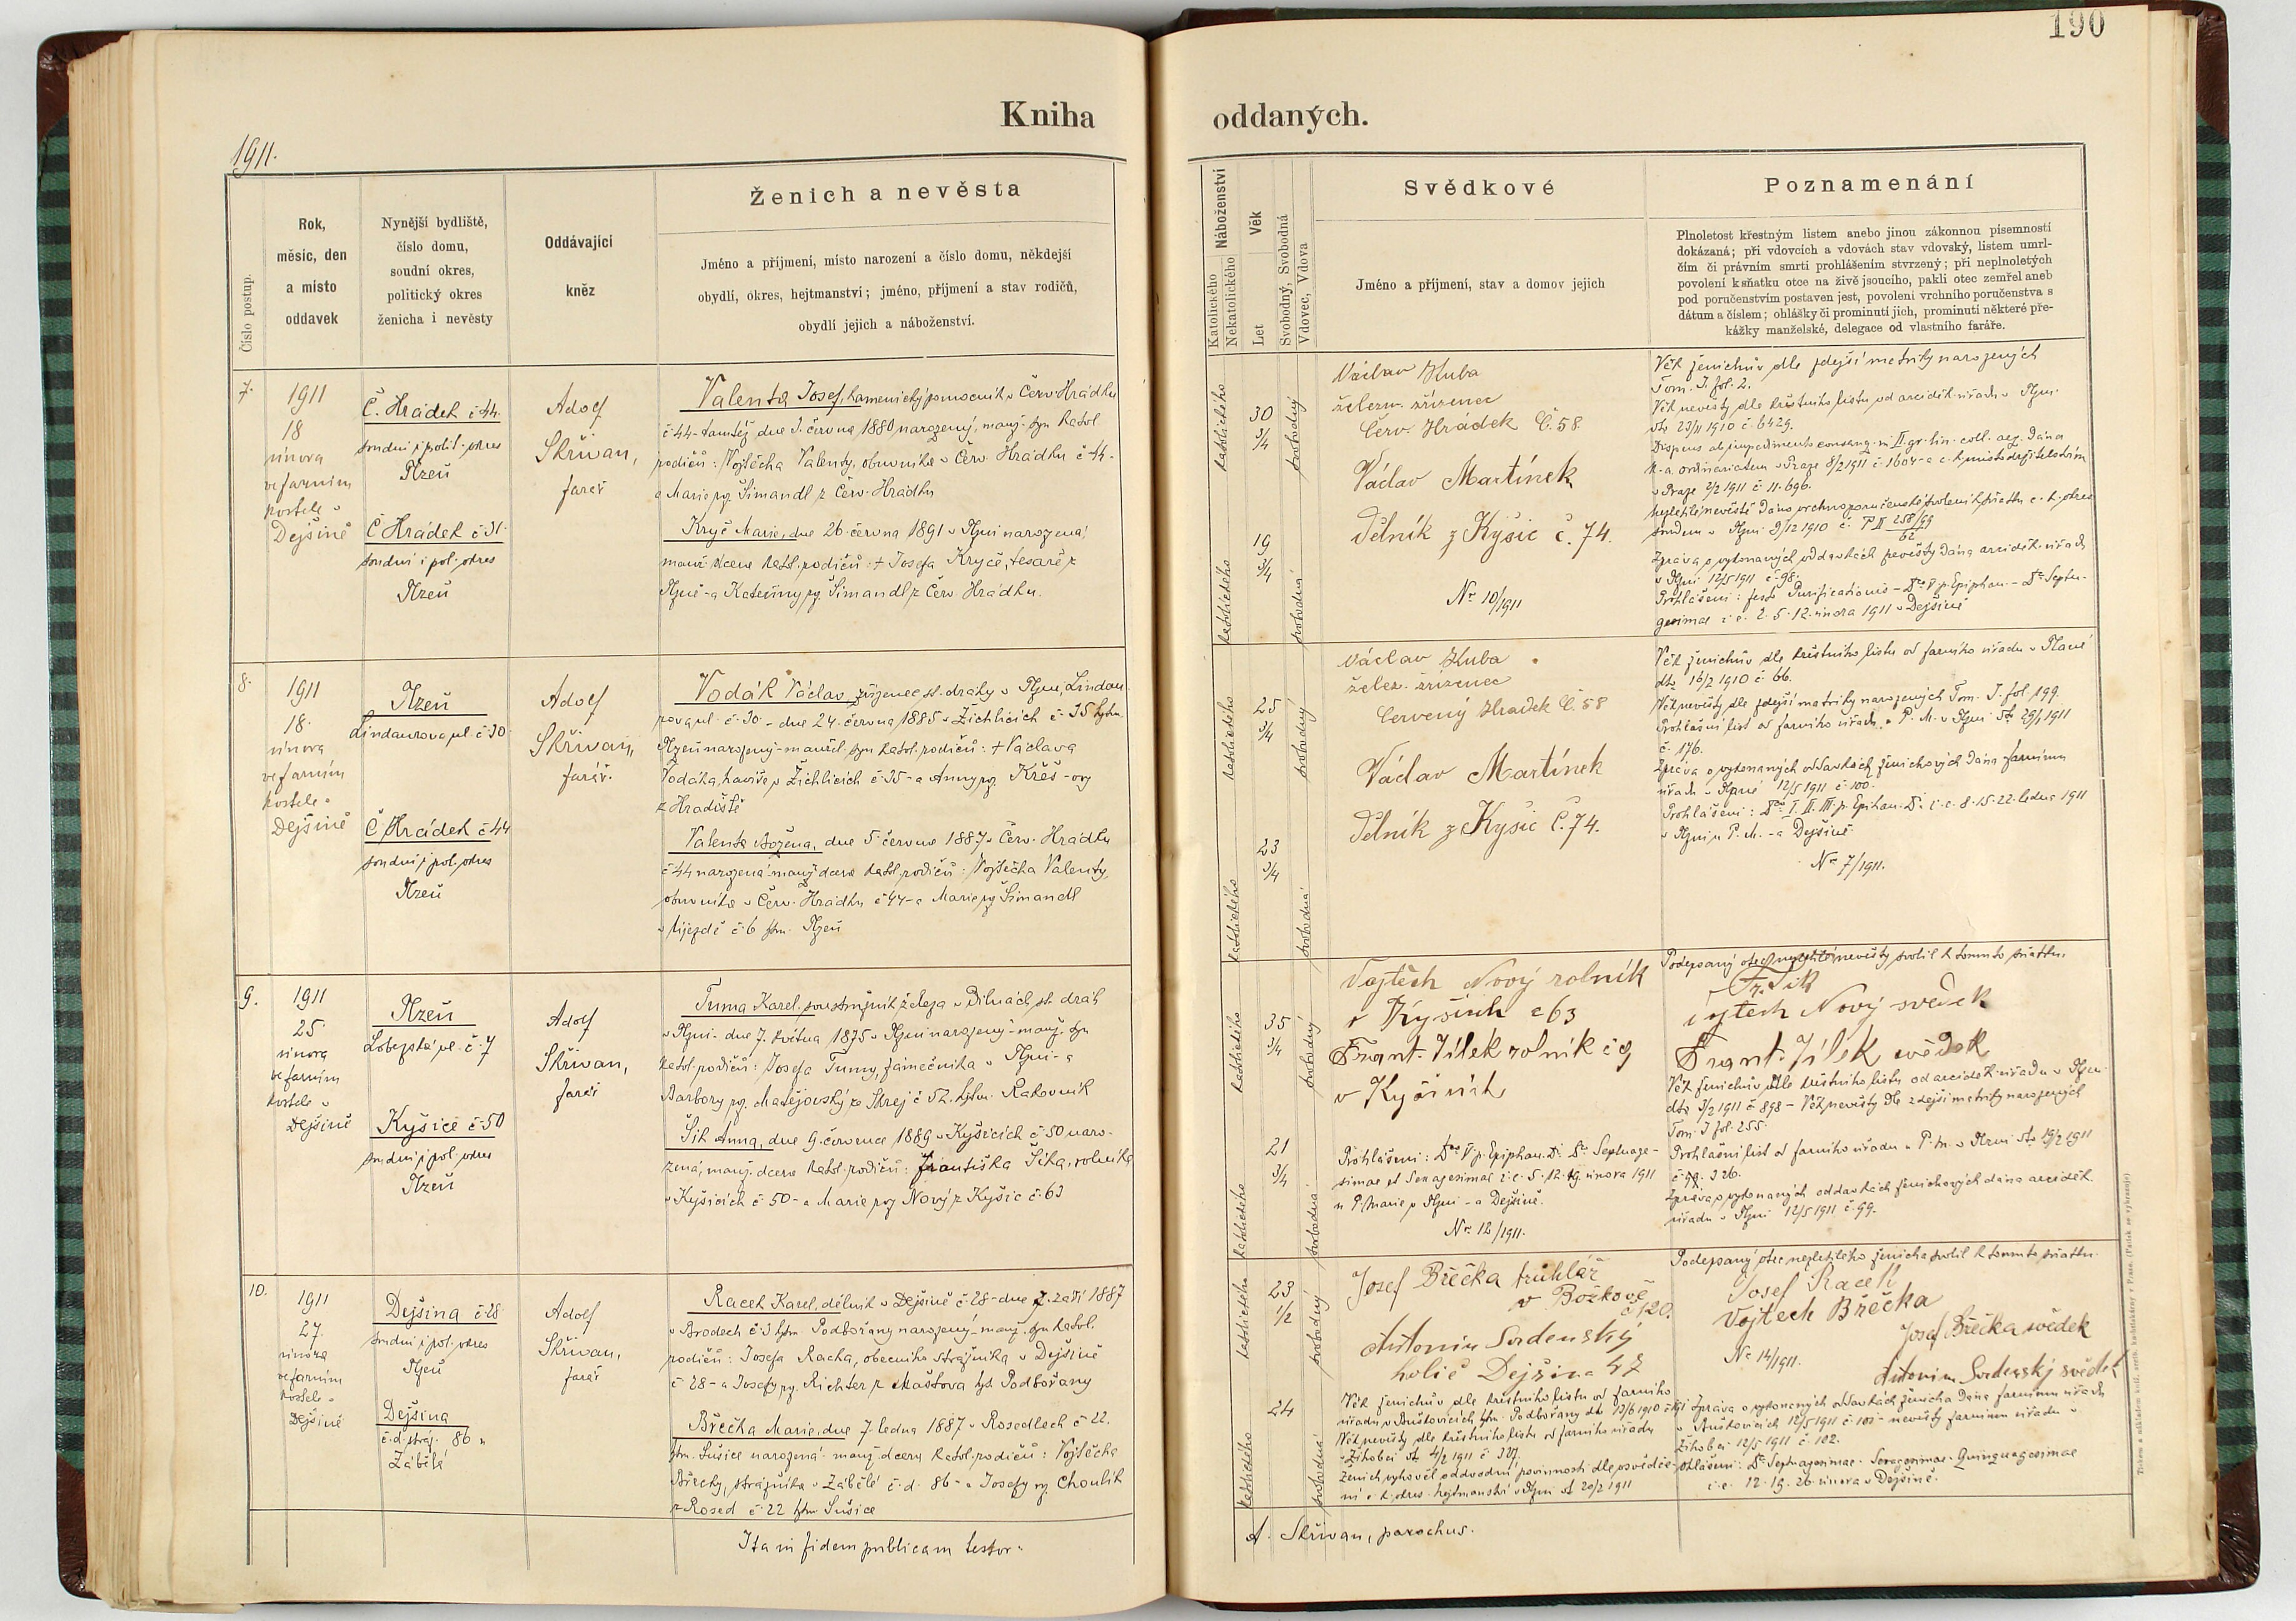 190
Kniha oddaných.
1911.
Číslo postup.
Rok,
měsíc, den
a místo
oddavek
Nynější bydliště,
číslo domu,
soudní okres,
politický okres
ženicha i nevěsty
Oddávající
kněz
Ženich a nevěsta
Jméno a příjmení, místo narození a číslo domu, někdejší
obydlí, okres, hejtmanství; jméno, příjmení a stav rodičů,
obydlí jejich a náboženství.
Náboženství
Katolického
Nekatolického
Věk
Let
Svobodný, Svobodná
Vdovec, Vdova
Svědkové
Jméno a příjmení, stav a domov jejich
Poznamenání
Plnoletost křestným listem anebo jinou zákonnou písemností
dokázaná; při vdovcích a vdovách stav vdovský, listem umrl-
čím či právním smrti prohlášením stvrzený; při neplnoletých
povolení k sňatku otce na živě jsoucího, pakli otec zemřel aneb
pod poručenstvím postaven jest, povolení vrchního poručenstva s
dátum a číslem; ohlášky či prominutí jich, prominutí některé pře-
kážky manželské, delegace od vlastního faráře.
7.
1911
18
února
ve farním
kostele v
Dejšině
Č. Hrádek č 44.
soudní i polit. okres
Plzeň
Č Hrádek č 31.
soudní i pol. okres
Plzeň
Adolf
Skřivan,
farář
Valenta Josef, kamenický pomocník v Červ. Hrádku
č 44 - tamtéž dne 1. června 1880 narozený, manž. syn katol.
rodičů: Vojtěcha Valenty, obuvníka v Červ. Hrádku č 44 -
a Marie roz. Šimandl z Červ. Hrádku
Kryč Marie, dne 26 června 1891 v Plzni narozená
manž. dcera katol. rodičů: † Josefa Kryče, tesaře z
Plzně - a Kateřiny roz. Šimandl z Červ. Hrádku.
katolického
30
3/4
svobodný
katolického
19
3/4
svobodná
Václav Kuba
železn. zřízenec
Červ. Hrádek č. 58
Václav Martínek
Dělník z Kyšic č. 74.
Nr 10/1911
Věk ženichův dle zdejší matriky narozených
Tom. I. fol. 2.
Věk nevěsty dle křestního listu od arciděk. úřadu v Plzni
dto 23/11 1910 č. 6429.
Dispens ab impedimento consang. in II. gr. lin. coll. aeq. dána
k. a. ordinariatem v Praze 8/2 1911 č. 1604 - a c. k. místodržitelstvím
v Praze 2/2 1911 č. 11.696.
nezletilé nevěstě dáno vrchnoporučenské svolení k sňatku c. k. okres.
soudem v Plzni 9/12 1910 č. P II 258/99
62
Zpráva o vykonaných oddavkách nevěsty dána arciděk. úřadu
v Plzni 12/5 1911 č. 98.
Prohlášení: festo Purificationis - Dca V p. Epiphan. - Dca Septua-
gesimae i. e. 2. 5. 12. února 1911 v Dejšině
8.
1911
18.
února
ve farním
kostele v
Dejšině
Plzeň
Lindaurova ul. č 30.
Č Hrádek č 44
soudní i pol. okres
Plzeň
Adolf
Skřivan,
farář.
Vodák Václav, zřízenec st. dráhy v Plzni, Lindau-
rova ul. č. 30. - dne 24. června 1885 v Žichlicích č. 35 hejtm.
Plzeň narozený - manžel. syn katol. rodičů: † Václava
Vodáka, havíře v Žichlicích č. 35 - a Anny roz. Křěš - ovy
z Hradiště
Valenta Božena, dne 5 června 1887 v Červ. Hrádku
č 44 narozená manž. dcera katol. rodičů: Vojtěcha Valenty,
obuvníka v Červ. Hrádku č 44 - a Marie roz. Šimandl
v Újezdě č. 6 hejtm. Plzeň
katolického
25
3/4
svobodný
katolického
23
3/4
svobodná
Václav Kuba
želez. zřízenec
Červený Hradek č. 58
Václav Martínek
Dělník z Kyšic č. 74.
Věk ženichův dle křestního listu od farního úřadu v Plané
dto 16/2 1910 č. 66.
Věk nevěsty dle zdejší matriky narozených Tom. I. fol. 199.
Prohlášní list od farního úřadu u P. M. v Plzni dto 29/1 1911
č. 176.
Zpráva o vykonaných oddavkách ženichových dána farnímu
úřadu v Plané 12/5 1911 č. 100.
Prohlášení: Dca I. II. III. p. Epihan. D. i. e. 8. 15. 22. ledna 1911
v Plzni u P. M. - a Dejšině
Nr 7/1911.
9.
1911
25.
února
ve farním
kostele v
Dejšině
Plzeň
Lobezská ul. č. 7
Kyšice č. 50
soudní i pol. okres
Plzeň
Adolf
Skřivan,
farář
Tuma Karel, soustružník železa v Dílnách st. dráh
v Plzni - dne 7. května 1875 v Plzni narozený - manž. syn
katol. rodičů: Josefa Tumy, zámečníka v Plzni - a
Barbory roz. Matějovský ze Skrej č 52. hejtm. Rakovník
Šik Anna, dne 9. července 1889 v Kyšicích č. 50 naro-
zená, manž. dcera katol. rodičů: Františka Šika, rolníka
v Kyšicích č 50 - a Marie roz Nový z Kyšic č. 63
katolického
35
3/4
svobodný
katolického
21
3/4
svobodná
Vojtěch Nový rolník
v Kyšicích č 63
Frant. Jílek rolník č 9
v Kyšicích
Prohlášení: Dca V p. Epiphan. D. Dca Septuage-
simae et Sexagesimae i. e. 5. 12. 19. února 1911
u P. Marie v Plzni - a Dejšině.
Nr 12/1911.
Podepsaný otec nezletilé nevěsty svolil k tomuto sňatku.
Fr. Šik
Vojtěch Nový svědek
Frant. Jílek svědek
Věk ženichův dle křestního listu od arciděk. úřadu v Plzni
dto 3/2 1911 č 898 - Věk nevěsty dle zdejší matriky narozených
Tom. I fol. 255.
Prohlášní list od farního úřadu u P. M. v Plzni dto 19/2 1911
č. 326.
Zpráva o vykonaných oddavkách ženichových dána arciděk.
úřadu v Plzni 12/5 1911 č. 99.
10.
1911
27.
února
ve farním
kostele v
Dejšině
Dejšina č 28
soudní i pol. okres
Plzeň
Dejšina
č. d. stráž. 86 u
Zábělé
Adolf
Skřivan,
farář
Racek Karel, dělník v Dejšině č 28 - dne 7. září 1887
v Brodech č. 3 hejtm Podbořany narozený - manž. syn katol.
rodičů: Josefa Racka, obecního strážníka v Dejšině
č 28 - a Josefy roz. Richter z Maštova hejt. Podbořany
Břečka Marie, dne 7. ledna 1887 v Rosedlech č 22.
hejtm. Sušice narozená manž. dcera katol. rodičů: Vojtěcha
Břečky, strážníka v Zábělé č. d. 86 - a Josefy roz. Choulík
z Rosed č. 22 hejtm Sušice
katolického
23
1/2
svobodný
katolického
24
svobodná
Josef Břečka truhlář
v Božkově
č 120.
Antonín Sudenský
holič Dejšina 47
Věk ženichův dle křestního listu od farního
úřadu v Buškovicích, hejtm. Podbořany dto 13/6 1910
Věk nevěsty dle křestního listu od farního úřadu
v Žihobci dto 4/2 1911 č 307.
Ženich vyhověl odvodní povinnosti dle osvědče-
ní c. k. okres. hejtmanství v Plzni dto 20/2 1911
Podepsaný otec nezletilého ženicha svolil k tomuto sňatku.
Josef Racek
Vojtěch Břečka
Josef Břečka svědek
Nr 14/1911.
Antonín Sudenský svědek
Zpráva o vykonaných oddavkách ženicha dána farnímu úřadu
v Buškovicích 12/5 1911 č. 101 - nevěsty farnímu úřadu v
Žihobci 12/5 1911 č. 102.
Ohlášení: Dca Septuagesimae. Sexagesimae. Quinquagesimae
i. e. 12. 19. 26. února v Dejšině.
Ita in fidem publicam testor:
A. Skřivan, parochus.